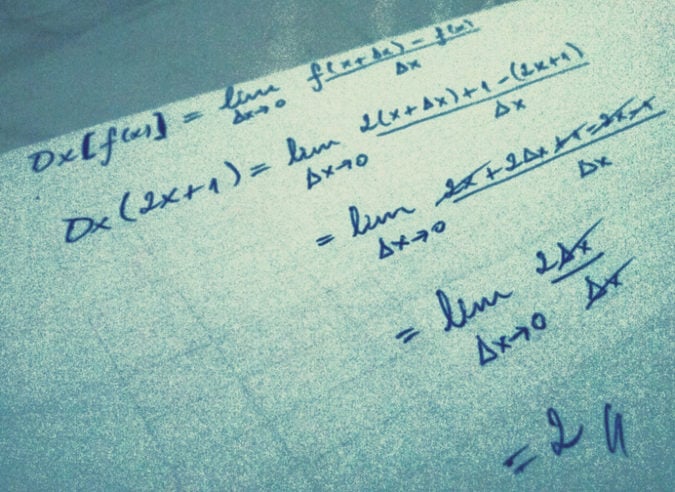 Dx[f(x)] = lim Δx→0 f(x+Δx) - f(x) / Δx
Dx(2x+1) = lim Δx→0 2(x+Δx)+1-(2x+1) / Δx
= lim Δx→0 2x+2Δx+1-2x-1 / Δx
= lim Δx→0 2Δx / Δx
= 2 //